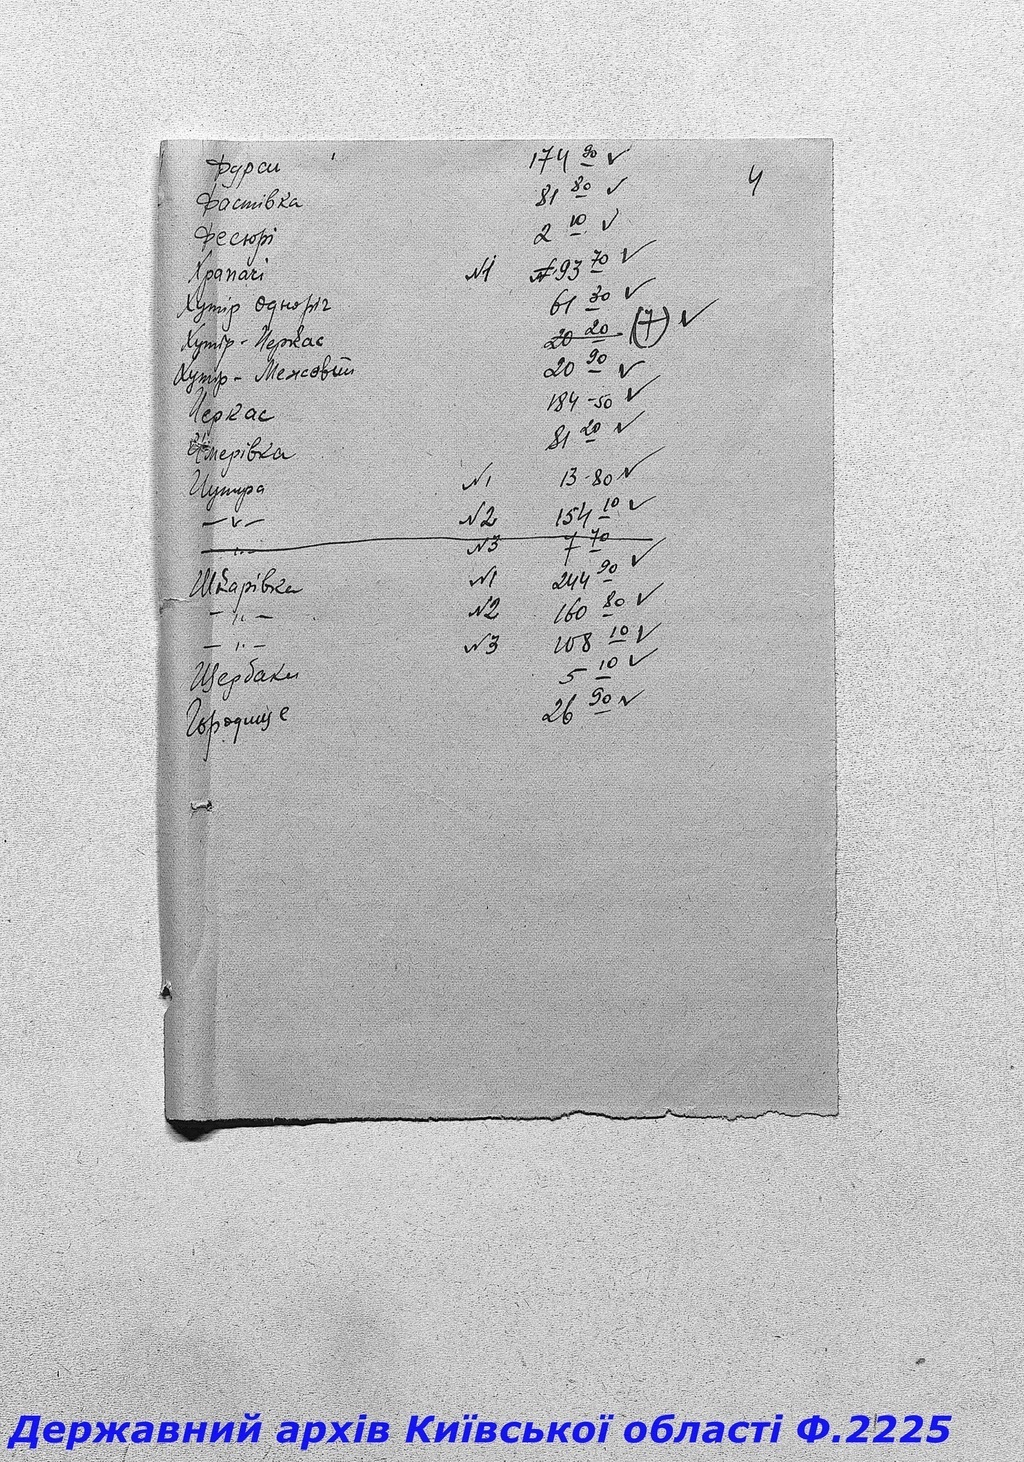 4
Фурси 174 90 ✓
Фастівка 81 80 ✓
Фесюрі 2 10 ✓
Храпачі №1 93 70 ✓
Хутір Одноріг 61 30 ✓
Хутір-Черкас 20 20 (7) ✓
Хутір-Межовый 20 90 ✓
Черкас 184-50 ✓
Чмерівка 81 20 ✓
Чупира №1 13-80 ✓
—"— №2 154 10 ✓
—"— №3 7 70
Шкарівка №1 244 90 ✓
—"— №2 160 80 ✓
—"— №3 108 10 ✓
Щербаки 5 10 ✓
Городище 26 90 ✓
Державний архів Київської області Ф.2225